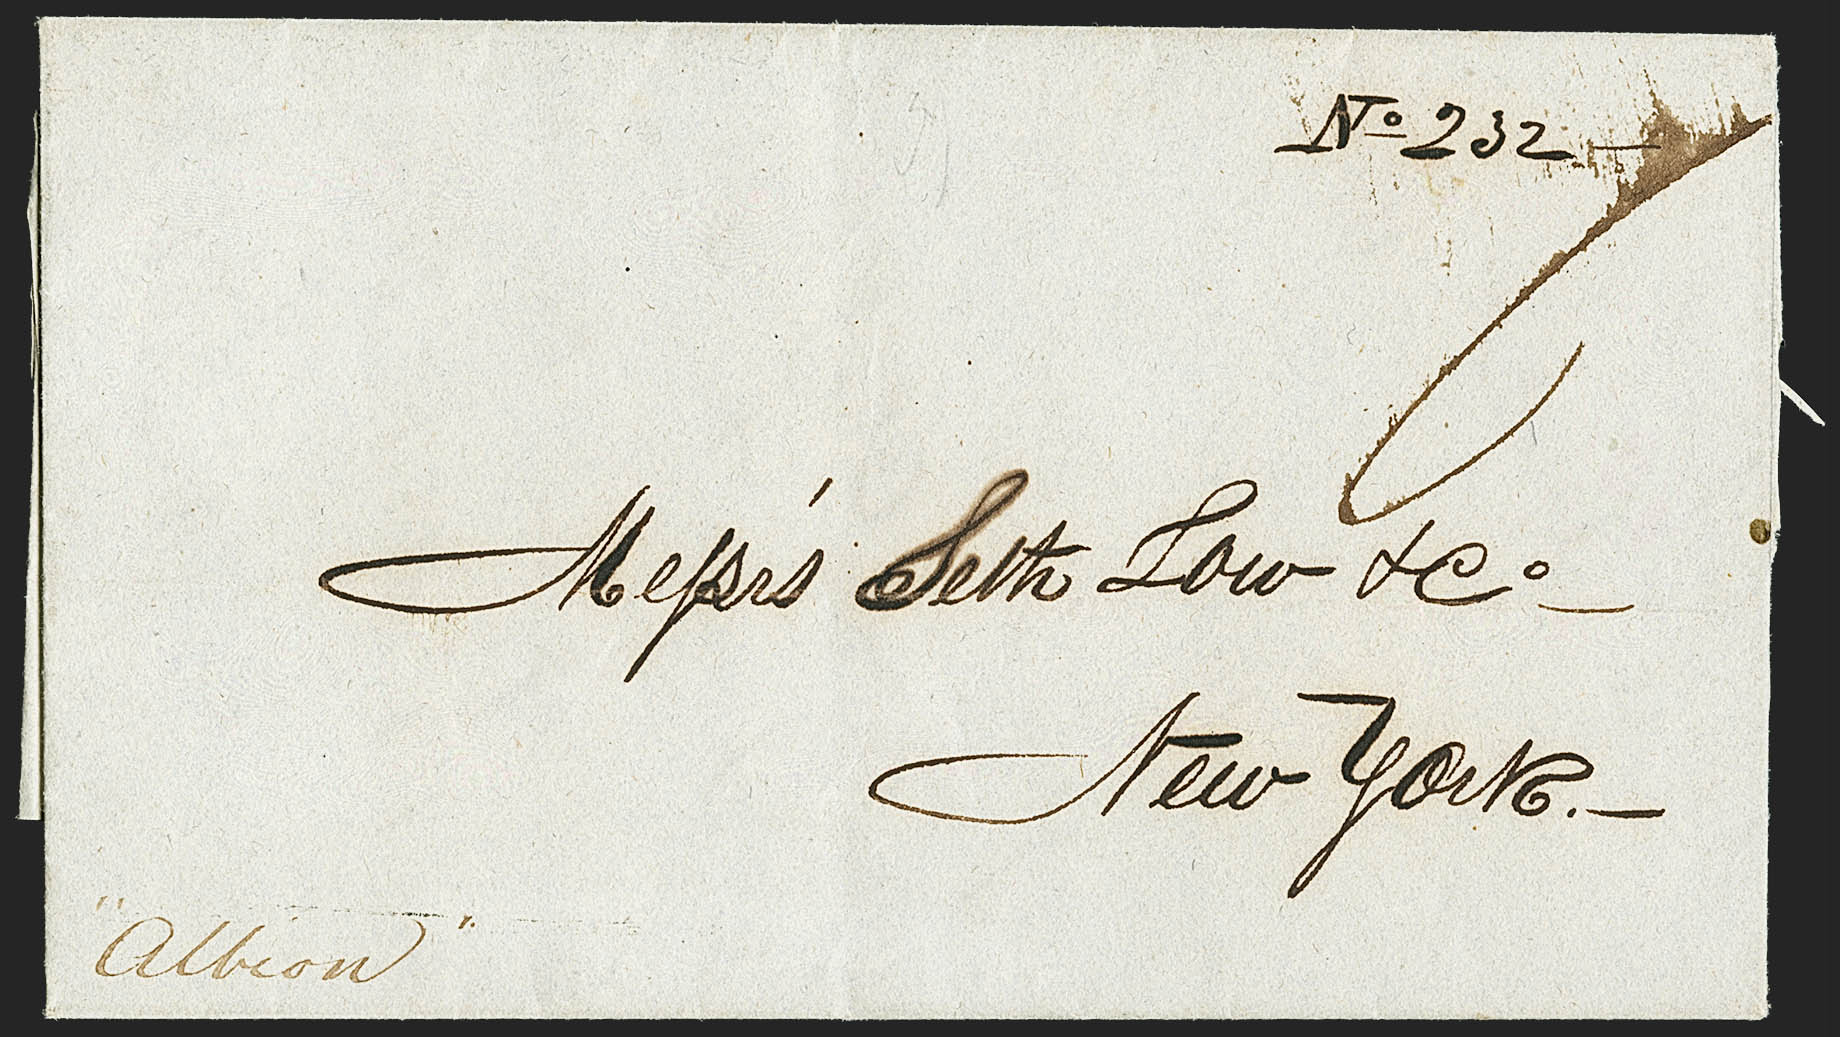 No 232 —
Meſsrs' Seth Low & Co. —
New York. —
"Albion"